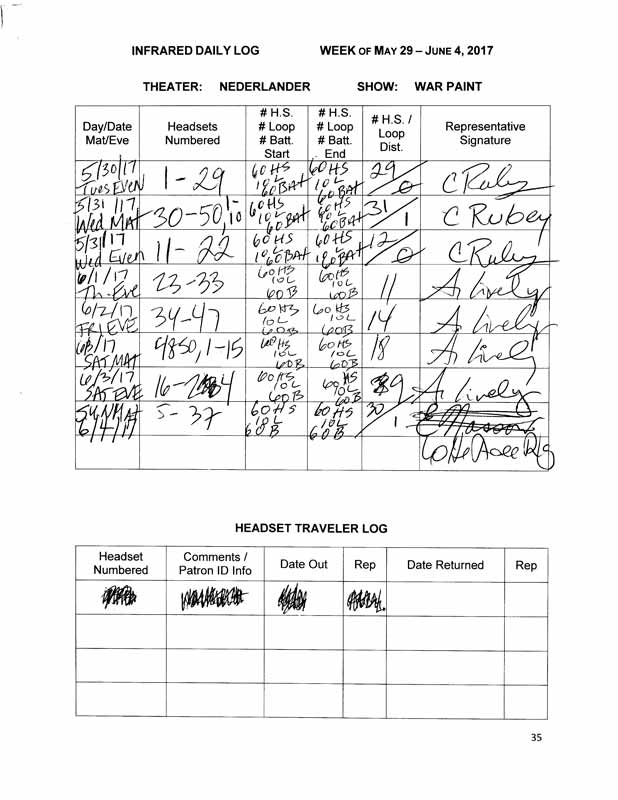 INFRARED DAILY LOG WEEK OF MAY 29 – JUNE 4, 2017
THEATER: NEDERLANDER SHOW: WAR PAINT
Day/Date Mat/Eve
Headsets Numbered
# H.S. # Loop # Batt. Start
# H.S. # Loop # Batt. End
# H.S. / Loop Dist.
Representative Signature
5/30/17 Tues EVEN 1-29 60HS 10L 60BAT 60HS 10L 60BAT 29/0 C Rubey
5/31/17 Wed MAT 30-50, 1-10 60HS 10L 60BAT 60HS 60BAT 31/1 C Rubey
5/31/17 Wed Even 11-22 60HS 10L 60BAT 60HS 10L 60BAT 12/0 C Rubey
6/1/17 Th. Eve 23-33 60HS 10L 60B 60HS 10L 60B 11/ A Lively
6/2/17 FRI EVE 34-47 60HS 10L 60B 60HS 10L 60B 14/ A Lively
6/3/17 SAT MAT 4850, 1-15 60HS 10L 60B 60HS 10L 60B 18/ A Lively
6/3/17 SAT EVE 16- 60HS 10L 60B 60HS 10L 60B 9/ A Lively
SUN MAT 6/4/17 5-37 60HS 10L 60B 60HS 10L 60B 30/1
HEADSET TRAVELER LOG
Headset Numbered
Comments / Patron ID Info
Date Out
Rep
Date Returned
Rep
35